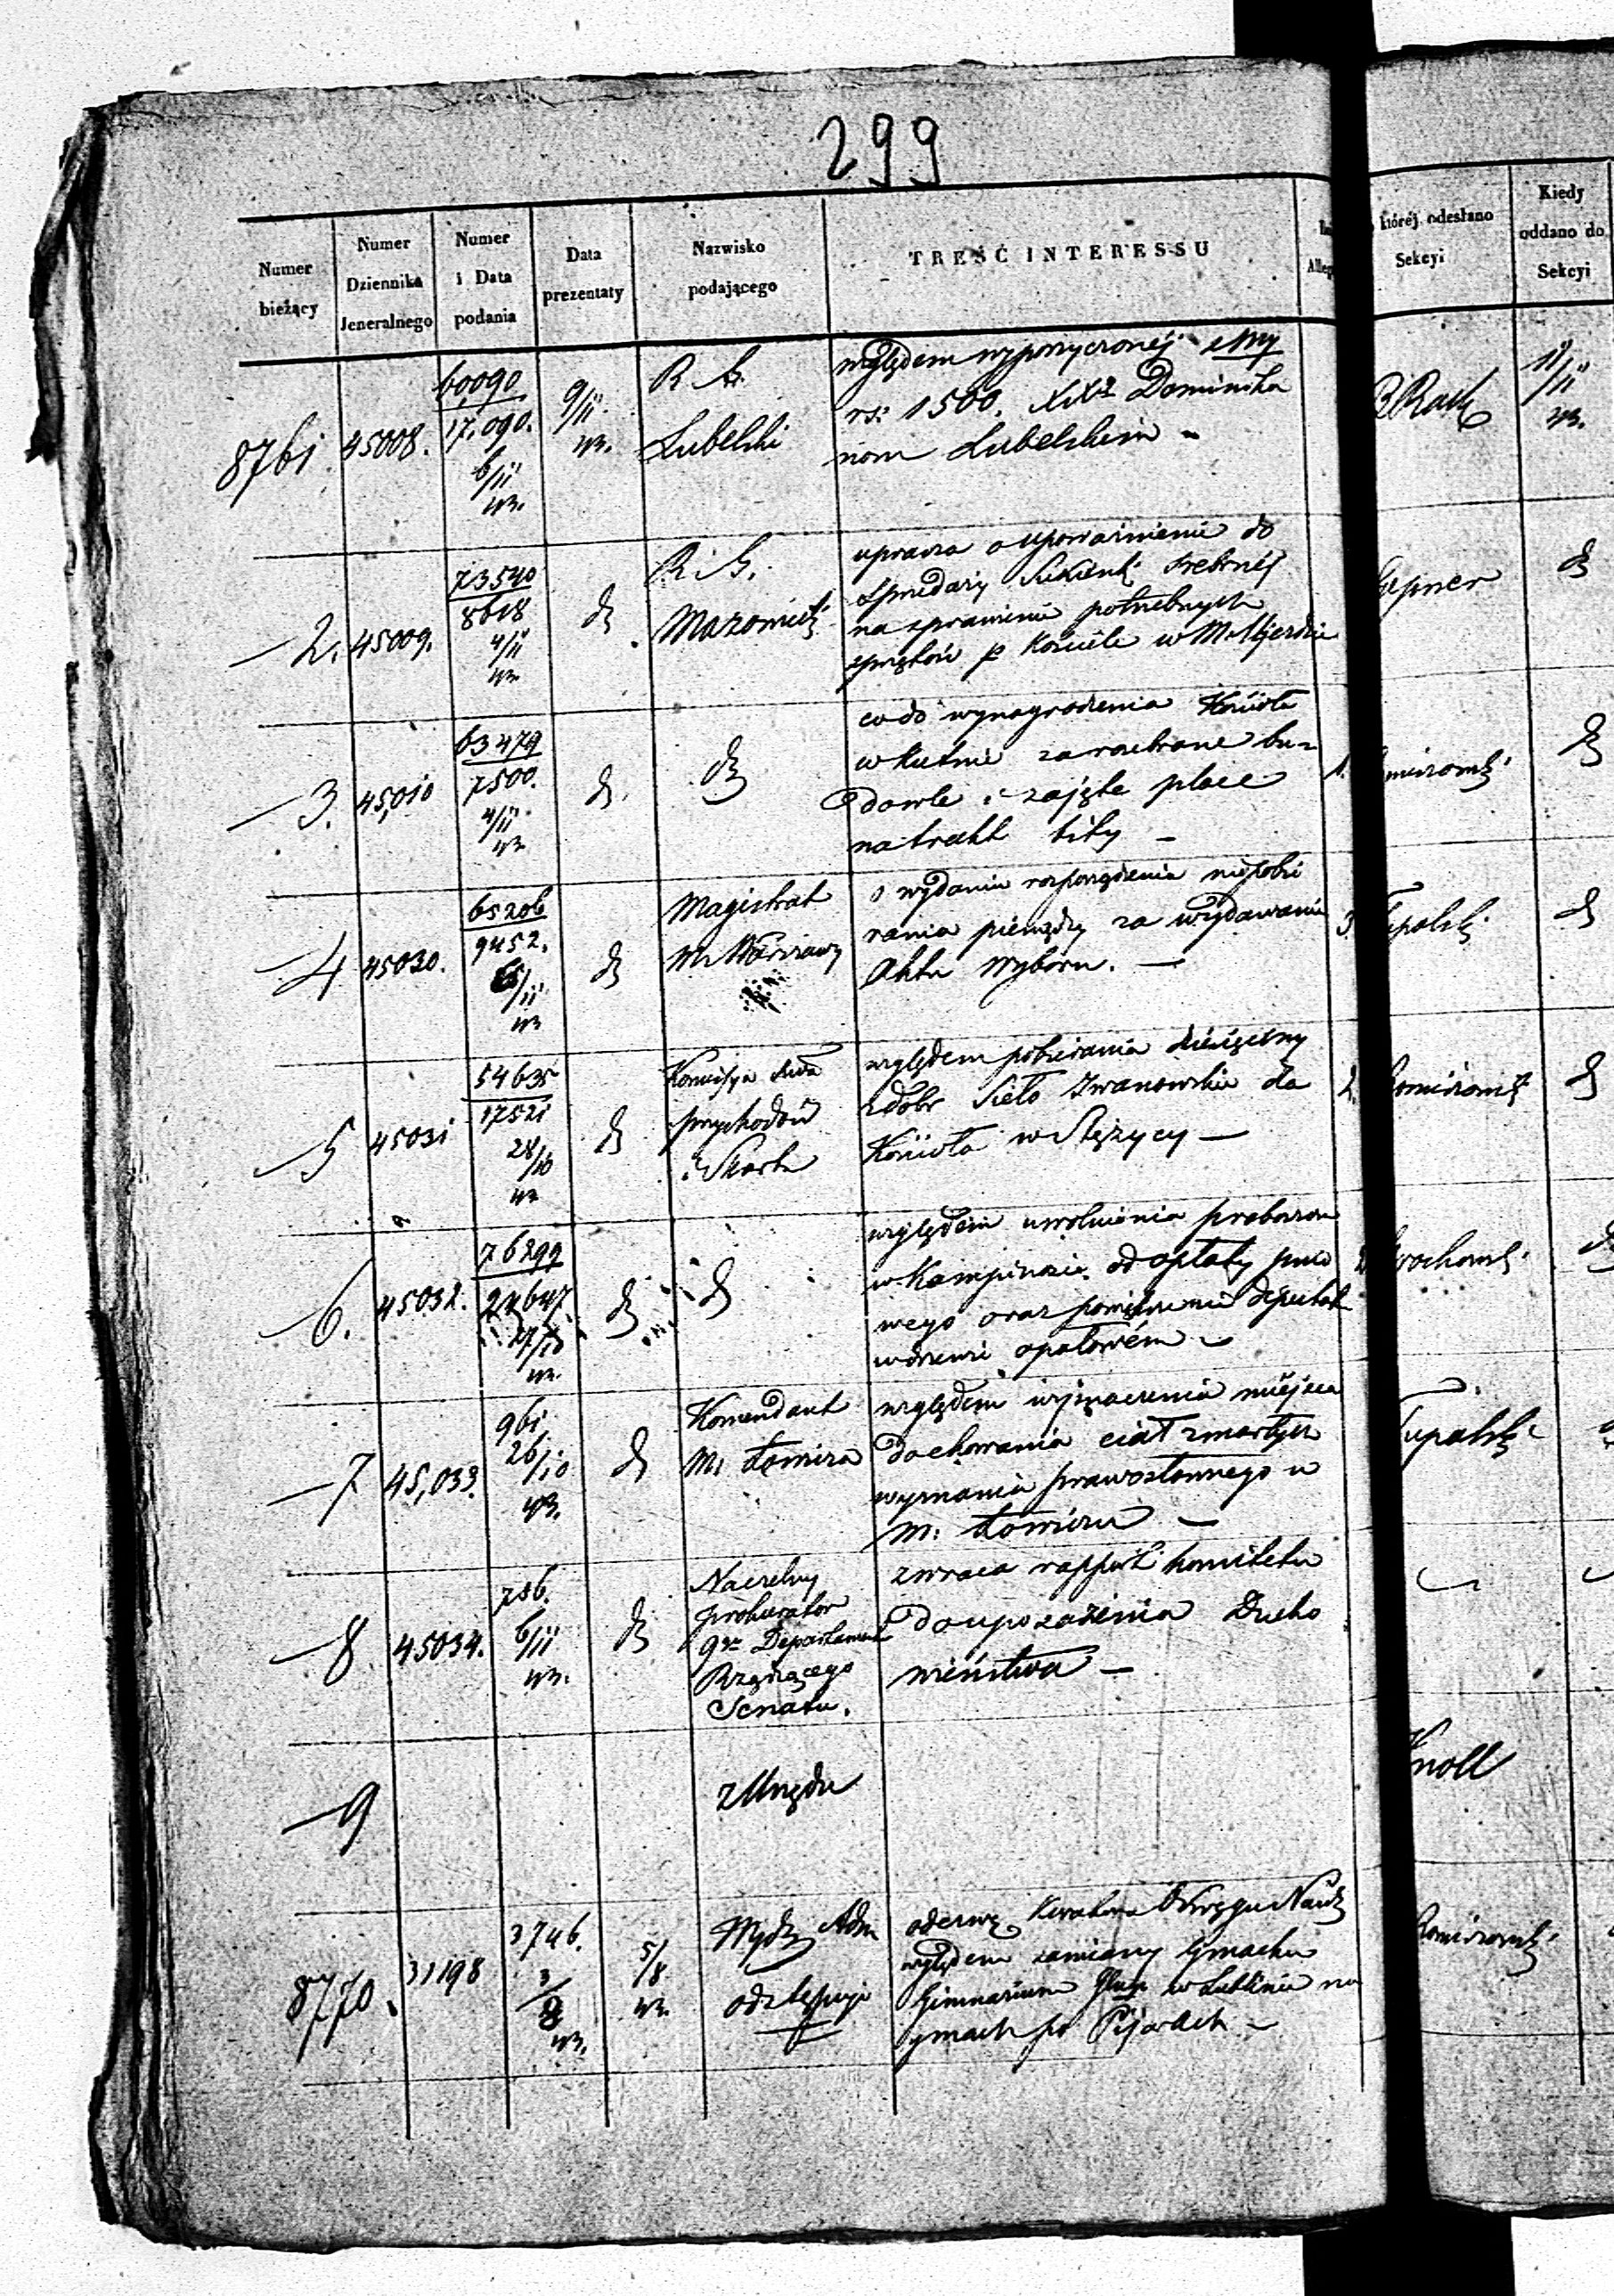 299
Numer
bieżący
Numer
Dziennika
Jeneralnego
Numer
i Data
podania
Data
prezentaty
Nazwisko
podającego
TREŚĆ INTERESSU
któréj odesłano
Sekcyi
Kiedy
oddano do
Sekcyi
8761
45008.
60090
17.090.
6/11
9/11
R. G.
Lubelski
względem wypożyczonéj sumy
rs: 1500. XXż Dominika
nom Lubelskim -
11/11
2.
45009.
73540
8618
4/11
R. G.
Mazowiecki
uprasza o upoważnienie do
sprzedaży sukienki srebrnéj
na sprawienie potrzebnych
Kościele w M.
Hepner
3.
45,010
63479
7500.
4/11
co do wynagrodzenia Kościoła
w Kutnie za rozebrane bu-
dowle i zajęte place
na trakt bity -
1.
4
45030.
65206
9452.
/11
Magistrat
M. Warszawy
o wydanie rozporządzenia niepobie
rania pieniędzy za wydawanie
Akta wyboru. -
3.
Tupalski
5
45031
54635
17521
28/10
Komisya
przychodów
i Skarbu
względem pobierania dziesięciny
z dóbr Sieło Iwanowskie dla
Kościoła w Stężycy -
2.
6.
45032.
76299
/10
względem uwolnienia proboszcza
w Kampinosie od opłaty
wego oraz deputat
w drzewie opałowém -
7
45,033.
961.
26/10
Komendant
M. Łowicza
względem wyznaczenia miejsca
do chowania ciał zmarłych
wyznania prawosławnego w
M: Łowiczu -
Tupalski
8
45034.
786.
6/11
Naczelny
prokurator
9go Departamentu
Rządzącego
Senatu.
zwraca rapport komitetu
do uposażenia Ducho
wieństwa -
9
z Urzędu
Knoll
8770.
31198
3746.
3/8
5/8
Wydz. Adm
odstępuje
odezwę Kuratora Okręgu Nauk
względem zamiany gmachu
Gimnazium w Lublinie na
gmach po Pijarach -